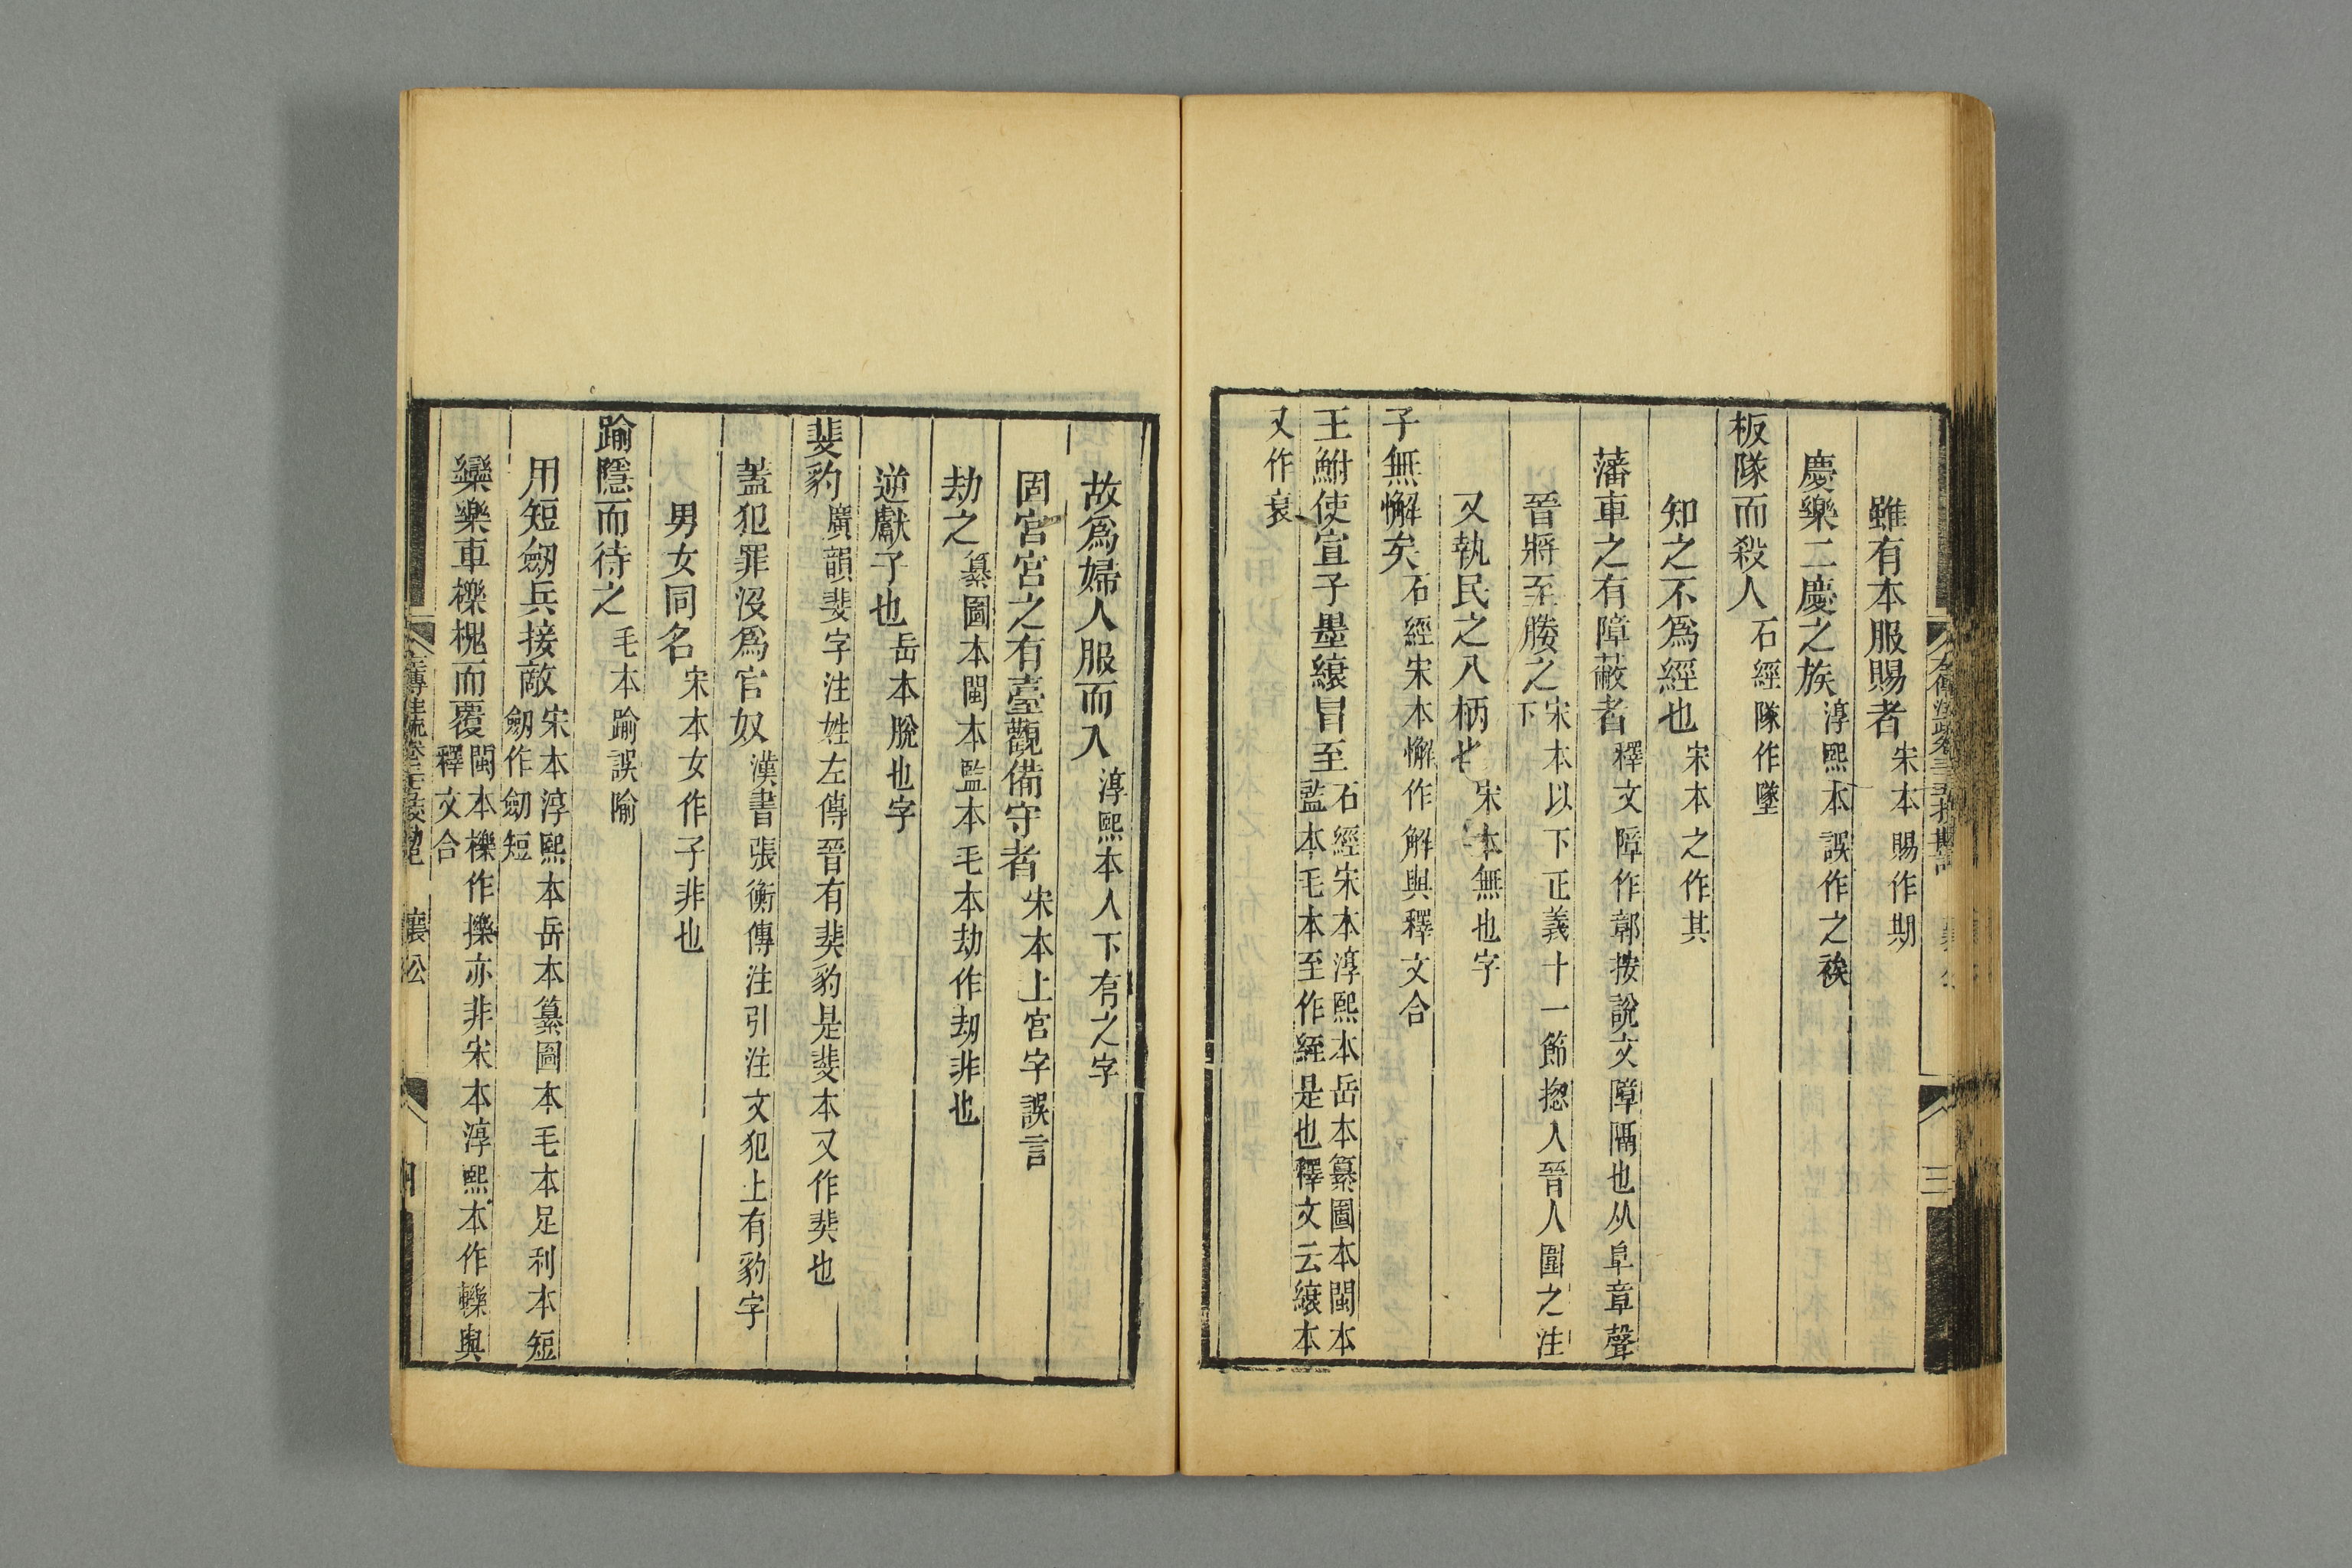 雖有本服賜者宋本賜作期
慶樂二慶之族淳熙本誤作之祾
板隊而殺人石經隊作墜
知之不爲經也宋本之作其
藩車之有障蔽者釋文障作鄣按說文障隔也从阜章聲
晉將至媵之宋本以下正義十一節揔入晉人圍之注
下
又執民之八柄也宋本無也字
子無懈矣石經宋本懈作解與釋文合
王鮒使宣子墨縗冒至石經宋本淳熙本岳本纂圖本閩本
監本毛本至作絰是也釋文云縗本
又作衰
故爲婦人服而入淳熙本人下有之字
固宮宮之有臺觀備守者宋本上宮字誤言
劫之纂圖本閩本監本毛本劫作刼非也
逆獻子也岳本脫也字
斐豹廣韻斐字注姓左傳晉有𤯷豹是斐本又作𤯷也
蓋犯罪沒爲官奴漢書張衡傳注引注文犯上有豹字
男女同名宋本女作子非也
踰隱而待之毛本踰誤隃
用短劒兵接敵宋本淳熙本岳本纂圖本毛本足利本短
劒作劒短
欒樂車櫟槐而覆閩本櫟作擽亦非宋本淳熙本作轢與
釋文合
襄公